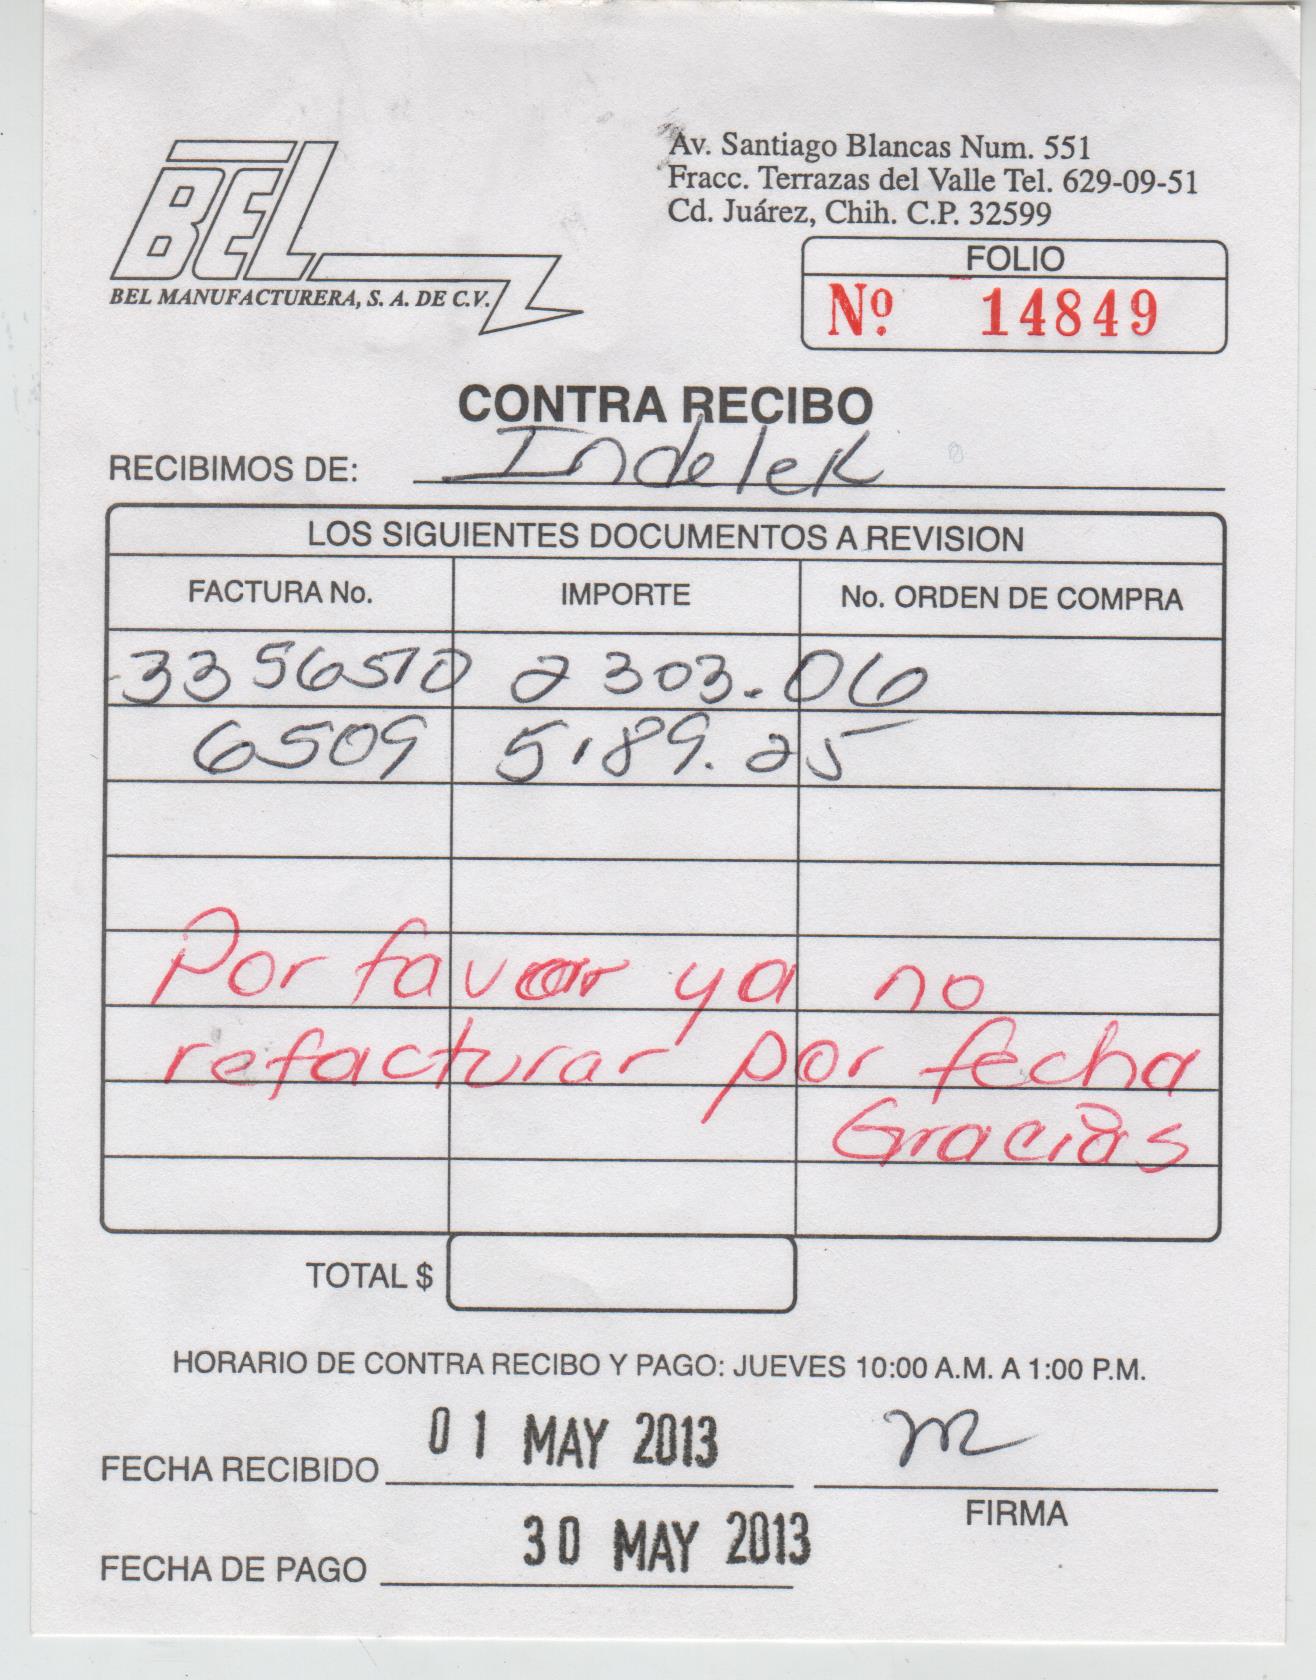 BEL
BEL MANUFACTURERA, S. A. DE C.V.
Av. Santiago Blancas Num. 551
Fracc. Terrazas del Valle Tel. 629-09-51
Cd. Juárez, Chih. C.P. 32599
FOLIO
Nº 14849
CONTRA RECIBO
RECIBIMOS DE: Indelek
LOS SIGUIENTES DOCUMENTOS A REVISION
FACTURA No. IMPORTE No. ORDEN DE COMPRA
3356510 2303.06
6509 5189.25
Por favor ya no
refacturar por fecha
Gracias
TOTAL $
HORARIO DE CONTRA RECIBO Y PAGO: JUEVES 10:00 A.M. A 1:00 P.M.
FECHA RECIBIDO 01 MAY 2013
FIRMA
FECHA DE PAGO 30 MAY 2013